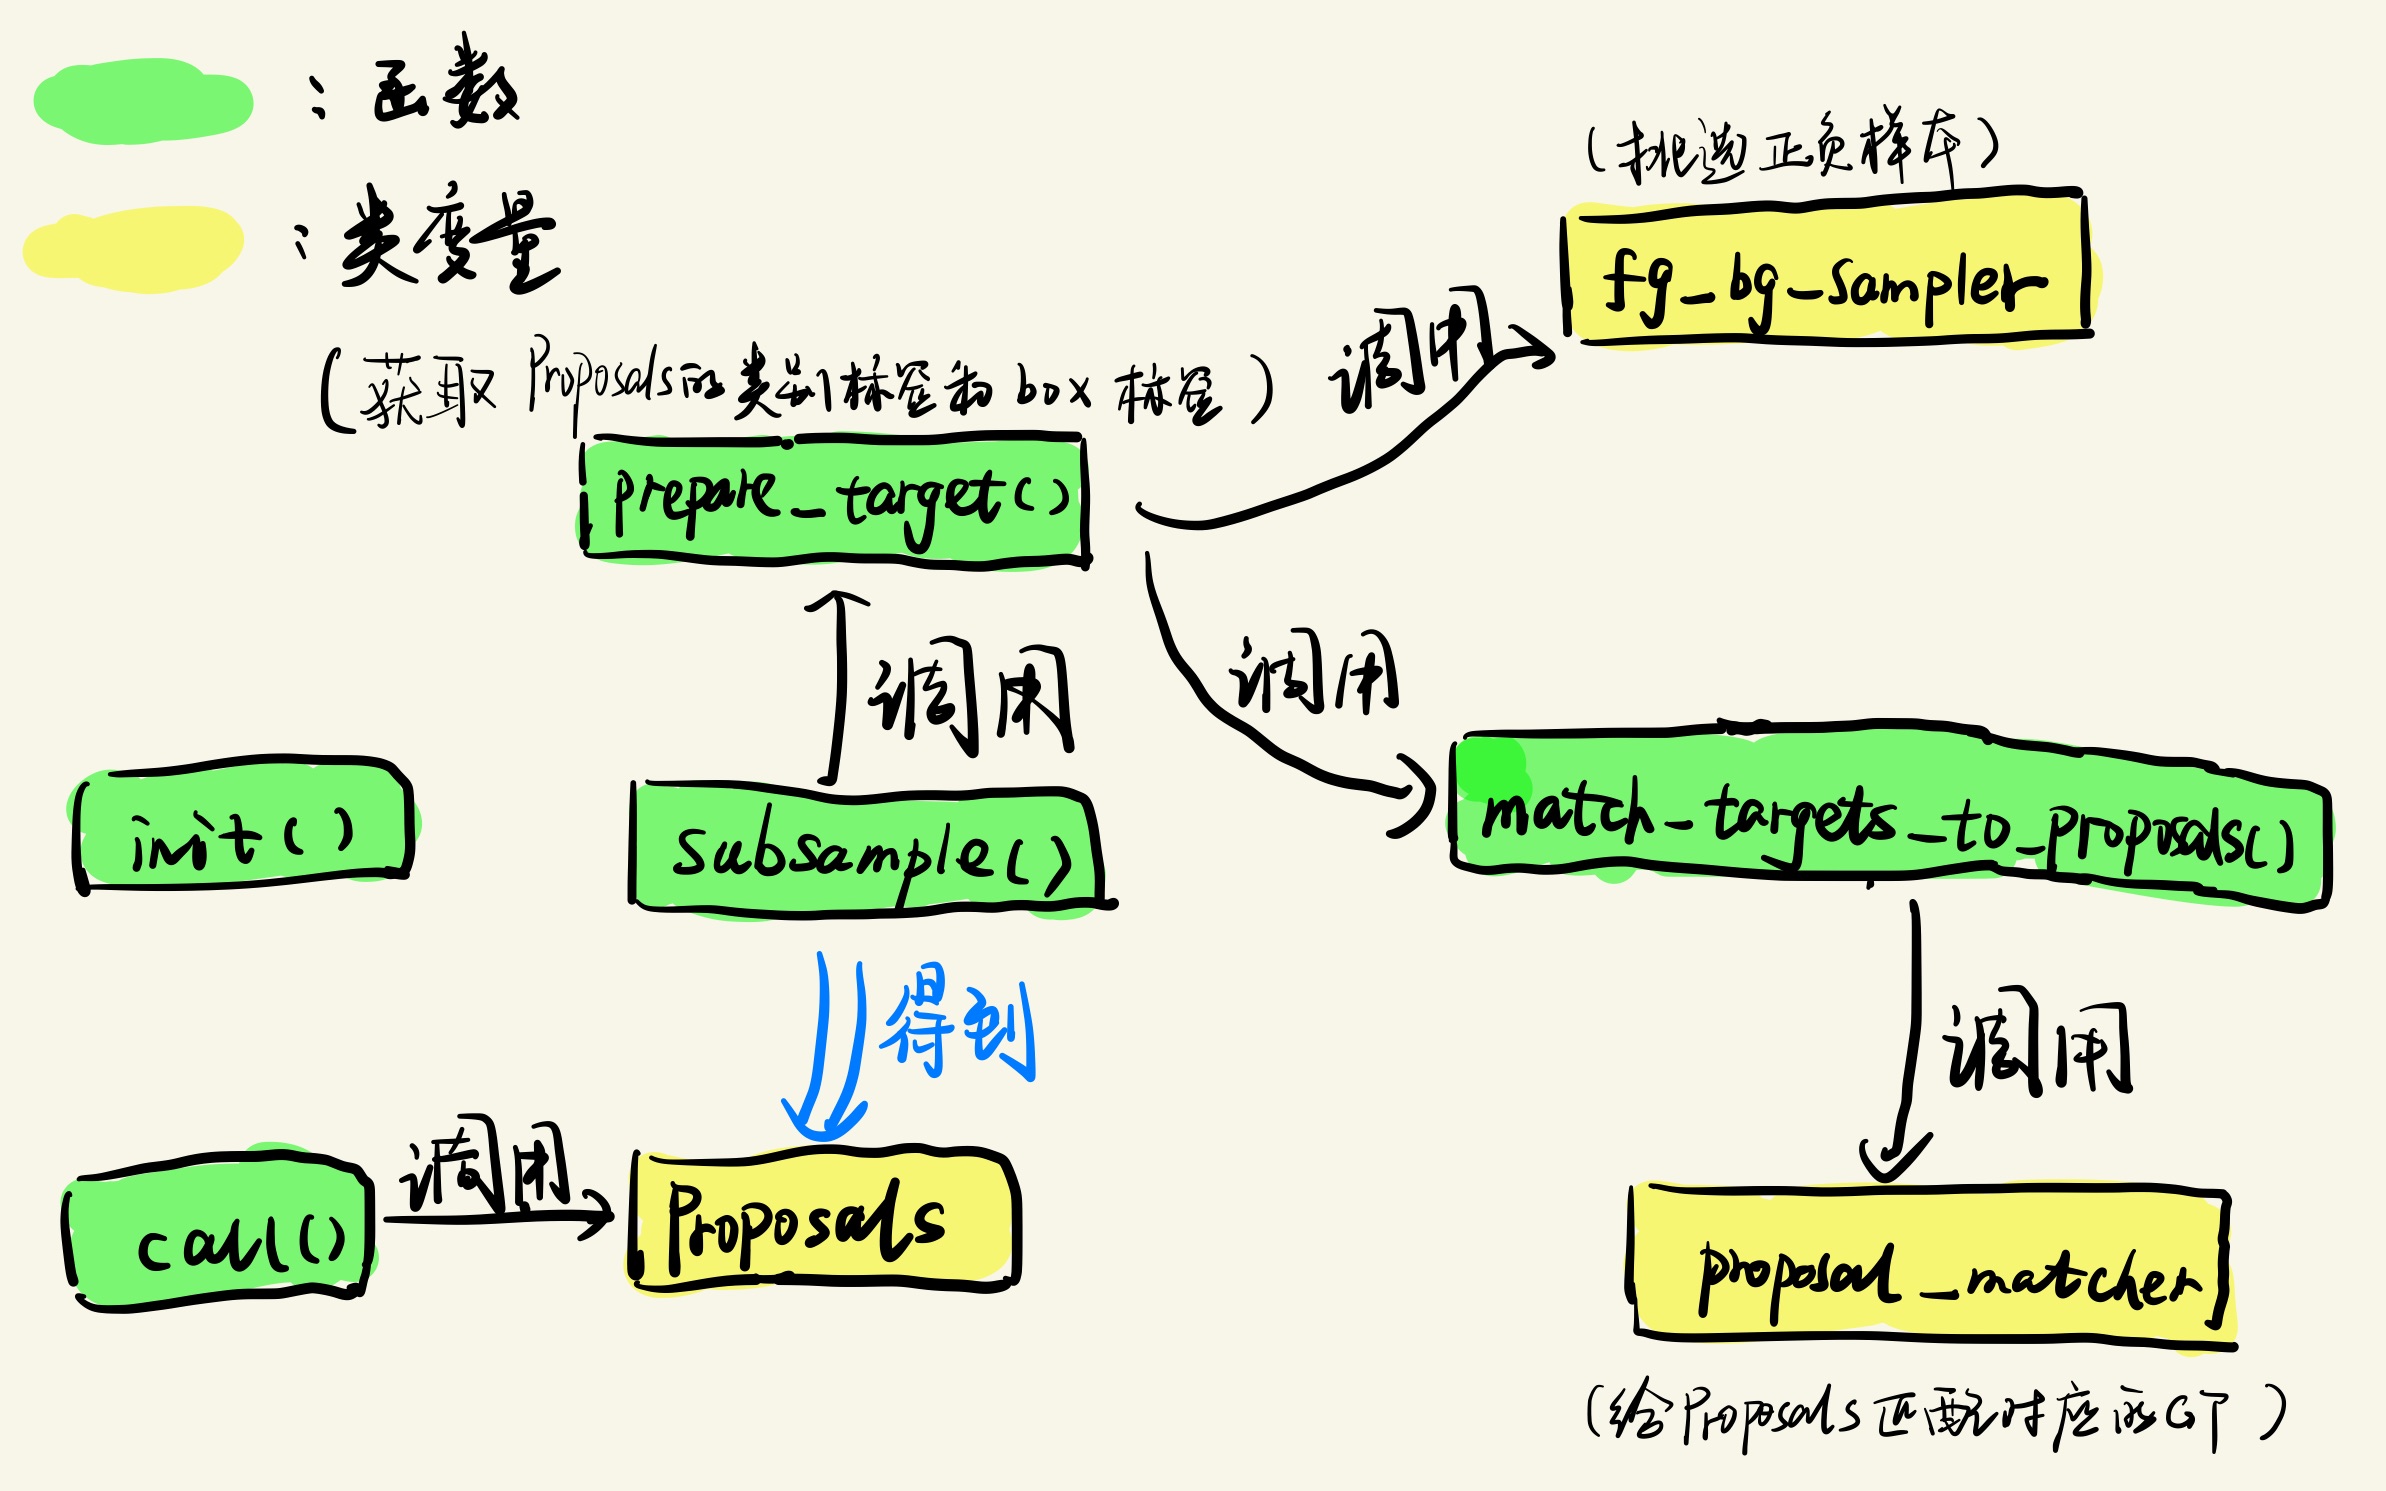 ：函数
：类变量
(挑选正负样本)
fg_bg_sampler
(获取Proposals的类别标签和box标签)
调用
prepare_target()
调用
调用
init()
subsample()
match_targets_to_proposals()
得到
调用
call()
调用
Proposals
proposal_matcher
(给Proposals匹配对应的GT)